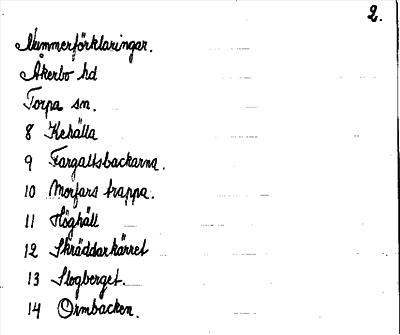 2.
Nummerförklaringar.
Åkerbo hd
Torpa sn.
8 Kehälla
9 Fargaltsbackarna.
10 Morfars trappa.
11 Höghäll
12 Skräddarkärret
13 Slogberget.
14 Ormbacken.